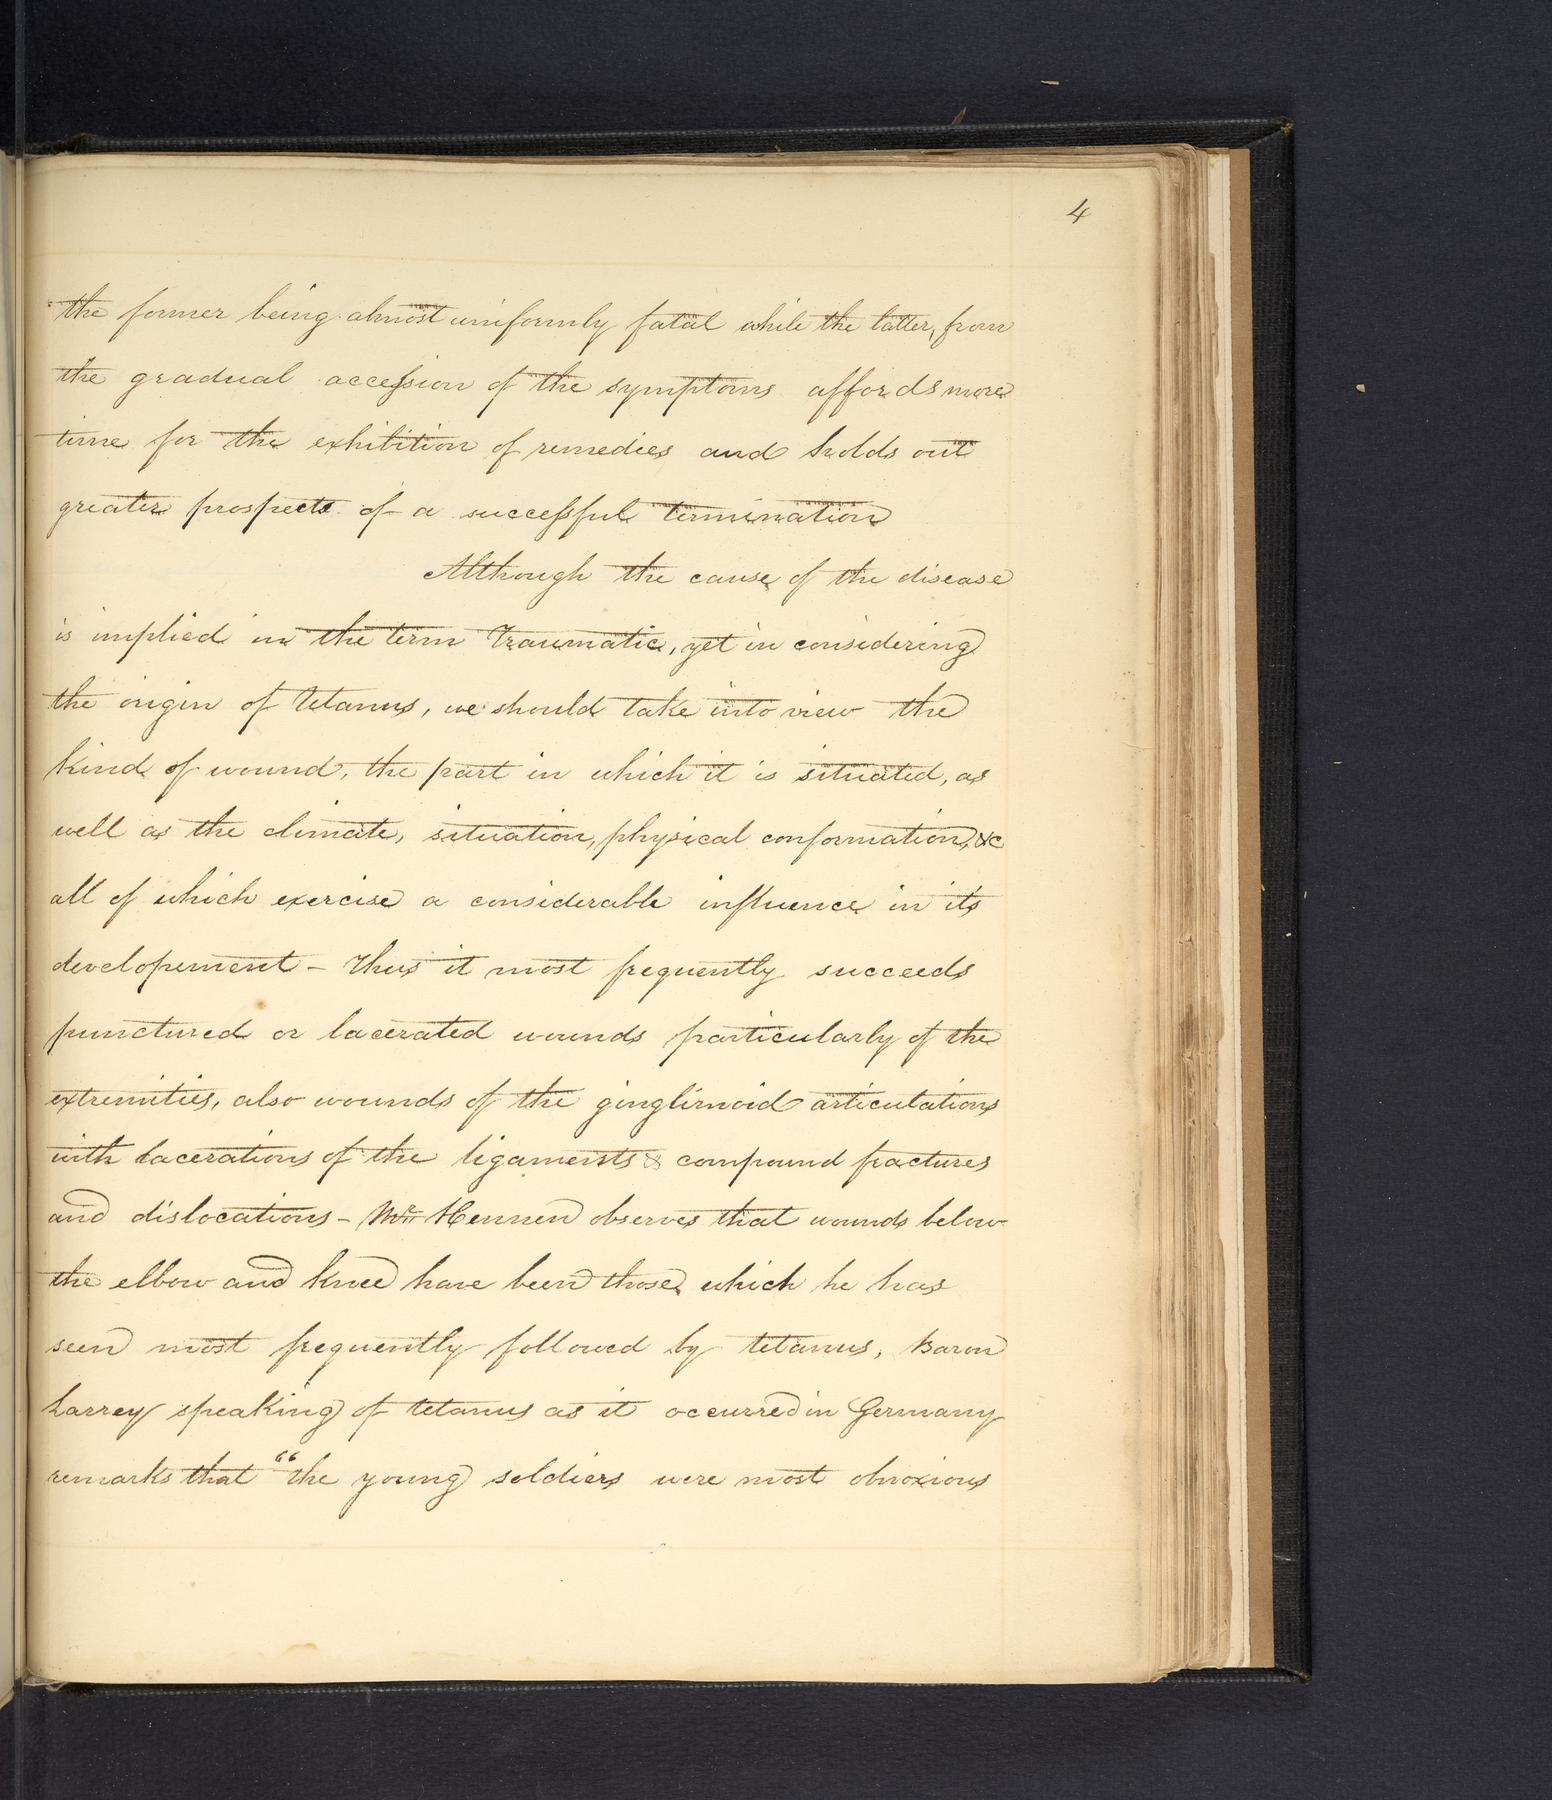 4
the former being almost uniformly fatal while the latter, from
the gradual accession of the symptoms affords more
time for the exhibition of remedies and holds out
greater prospects of a successful termination
Although the cause of the disease
is implied in the term Traumatic, yet in considering
the origin of Tetanus, we should take into view the
kind of wound, the part in which it is situated, as
well as the climate, situation, physical conformation, &c
all of which exercise a considerable influence in it's
developement – Thus it most frequently succeeds
punctured or lacerated wounds particularly of the
extremities, also wounds of the ginglimoid articulations
with lacerations of the ligaments & compound fractures
and dislocations – Mr Hennen observes that wounds below
the elbow and knee have been those which he has
seen most frequently followed by tetanus, Baron
Larrey speaking of tetanus as it occurred in Germany
remarks that "the young soldiers were most obnoxious